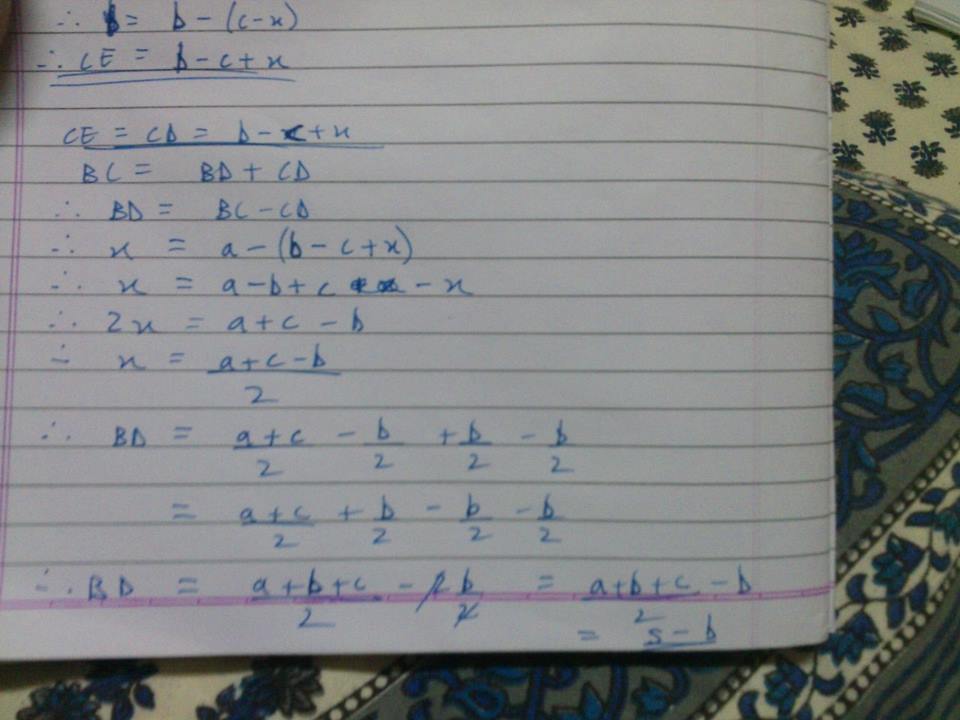 ∴ b = b - (c-x)
∴ CE = b - c + x
CE = CD = b - c + x
BC = BD + CD
∴ BD = BC - CD
∴ x = a - (b - c + x)
∴ x = a - b + c - x
∴ 2x = a + c - b
∴ x = (a + c - b)/2
∴ BD = (a + c)/2 - b/2 + b/2 - b/2
= (a + c)/2 + b/2 - b/2 - b/2
∴ BD = (a + b + c)/2 - 2b/2 = (a + b + c)/2 - b
= s - b